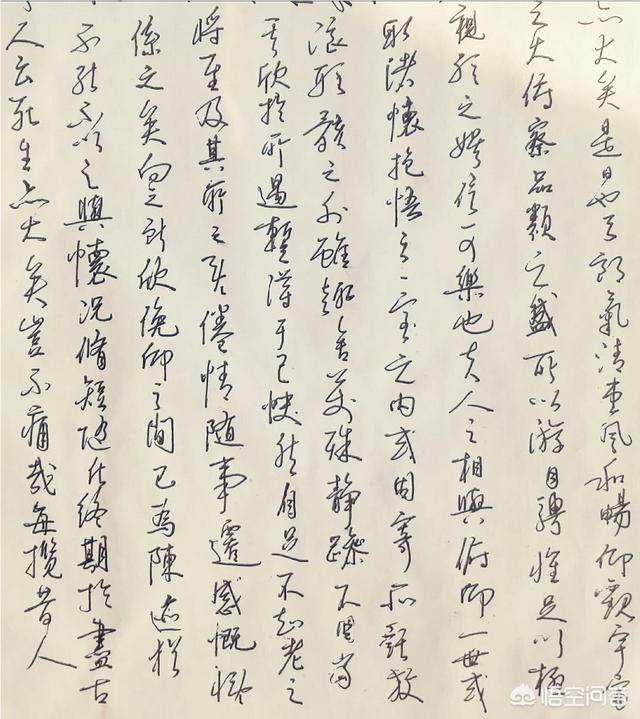 亦大矣是日也天朗氣清惠風和暢仰觀宇宙
之大俯察品類之盛所以游目騁懷足以極
視聽之娛信可樂也夫人之相與俯仰一世或
取諸懷抱悟言一室之內或因寄所託放
浪形骸之外雖趣舍萬殊靜躁不同當
其欣於所遇暫得于己快然自足不知老之
將至及其所之既倦情隨事遷感慨係
係之矣向之所欣俛仰之間已為陳迹猶
不能不以之興懷況脩短隨化終期於盡古
人云死生亦大矣豈不痛哉每攬昔人
悟空问答